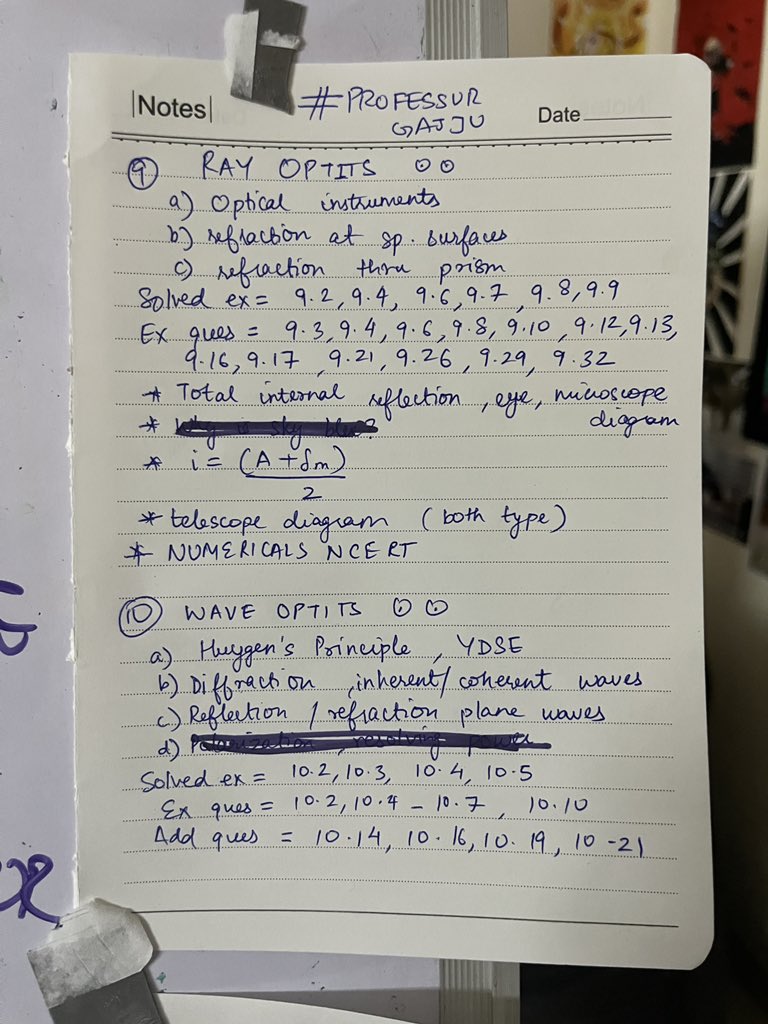 |Notes|
#PROFESSUR
GAJJU
Date
9 RAY OPTITS
a) Optical instruments
b) refraction at sp. surfaces
c) refraction thru prism
Solved ex = 9.2, 9.4, 9.6, 9.7, 9.8, 9.9
Ex ques = 9.3, 9.4, 9.6, 9.8, 9.10, 9.12, 9.13,
9.16, 9.17 9.21, 9.26, 9.29, 9.32
* Total internal reflection, eye, microscope
diagram
* Why is sky blue?
* i = (A + δm)
2
* telescope diagram (both type)
* NUMERICALS NCERT
10 WAVE OPTITS
a) Huygen's Principle, YDSE
b) Diffraction, inherent/coherent waves
c) Reflection / refraction plane waves
d) Polarization, resolving power
Solved ex = 10.2, 10.3, 10.4, 10.5
Ex ques = 10.2, 10.4 - 10.7, 10.10
Add ques = 10.14, 10.16, 10.19, 10-21